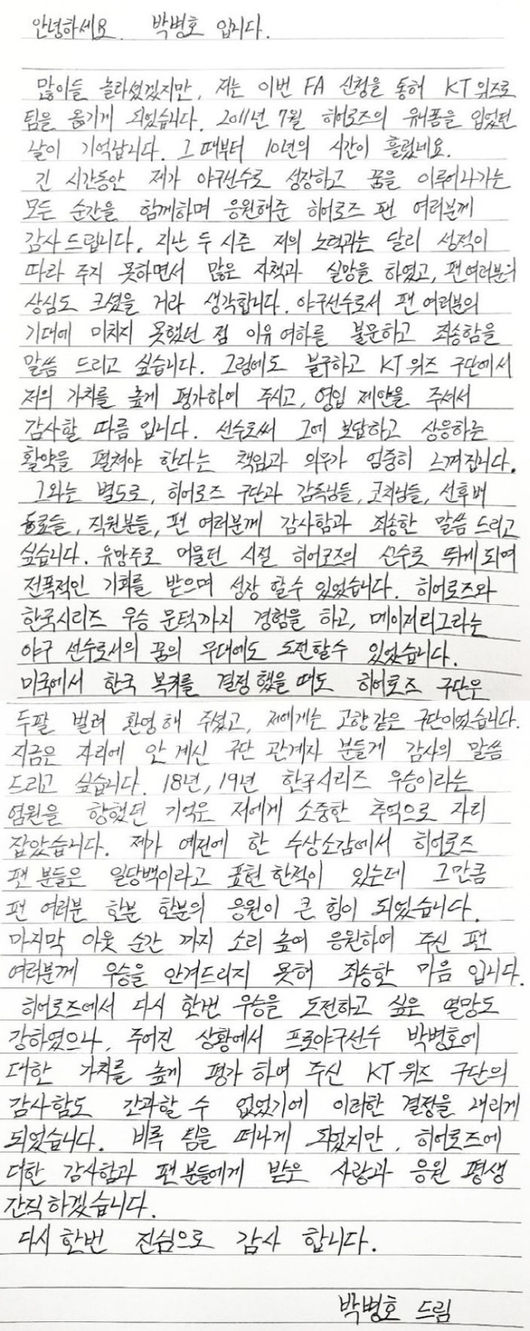 안녕하세요. 박병호 입니다.
많이들 놀라셨겠지만, 저는 이번 FA 신청을 통해 KT 위즈로
팀을 옮기게 되었습니다. 2011년 7월 히어로즈의 유니폼을 입었던
날이 기억납니다. 그 때부터 10년의 시간이 흘렀네요.
긴 시간동안 제가 야구선수로 성장하고 꿈을 이루어나가는
모든 순간을 함께하며 응원해준 히어로즈 팬 여러분께
감사드립니다. 지난 두 시즌 저의 노력과는 달리 성적이
따라 주지 못하면서 많은 자책과 실망을 하였고, 팬 여러분의
상심도 크셨을 거라 생각합니다. 야구선수로서 팬 여러분의
기대에 미치지 못했던 점 이유 여하를 불문하고 죄송함을
말씀 드리고 싶습니다. 그럼에도 불구하고 KT 위즈 구단에서
저의 가치를 높게 평가하여 주시고, 영입 제안을 주셔서
감사할 따름 입니다. 선수로써 그에 보답하고 상응하는
활약을 펼쳐야 한다는 책임과 의무가 엄중히 느껴집니다.
그와는 별도로, 히어로즈 구단과 감독님들, 코치님들, 선후배
동료들, 직원분들, 팬 여러분께 감사함과 죄송한 말씀 드리고
싶습니다. 유망주로 머물던 시절 히어로즈의 선수로 뛰게 되며
전폭적인 기회를 받으며 성장 할수 있었습니다. 히어로즈와
한국시리즈 우승 문턱까지 경험을 하고, 메이저리그라는
야구 선수로서의 꿈의 무대에도 도전할수 있었습니다.
미국에서 한국 복귀를 결정 했을 때도 히어로즈 구단은
두팔 벌려 환영해 주셨고, 저에게는 고향같은 구단이었습니다.
지금은 자리에 안 계신 구단 관계자 분들께 감사의 말씀
드리고 싶습니다. 18년, 19년 한국시리즈 우승이라는
염원을 향했던 기억은 저에게 소중한 추억으로 자리
잡았습니다. 제가 예전에 한 수상소감에서 히어로즈
팬 분들은 일당백이라고 표현 한적이 있는데 그만큼
팬 여러분 한분 한분의 응원이 큰 힘이 되었습니다.
마지막 아웃 순간 까지 소리 높여 응원하여 주신 팬
여러분께 우승을 안겨드리지 못해 죄송한 마음 입니다.
히어로즈에서 다시 한번 우승을 도전하고 싶은 열망도
강하였으나, 주어진 상황에서 프로야구선수 박병호에
대한 가치를 높게 평가 하여 주신 KT 위즈 구단의
감사함도 간과할 수 없었기에 이러한 결정을 내리게
되었습니다. 비록 팀을 떠나게 되었지만, 히어로즈에
대한 감사함과 팬 분들에게 받은 사랑과 응원 평생
간직하겠습니다.
다시 한번 진심으로 감사 합니다.
박병호 드림